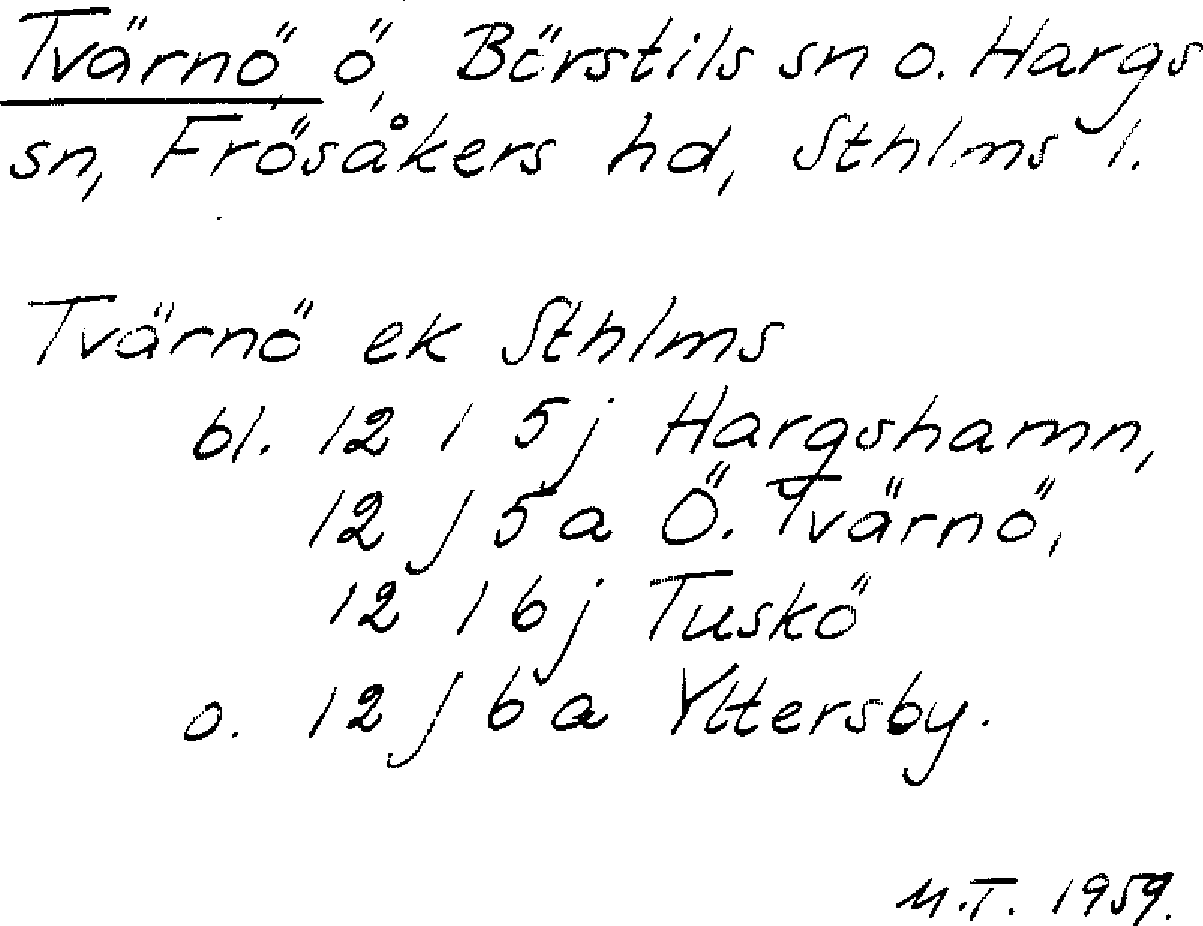 Tvärnö, ö, Börstils sn o. Hargs
sn, Frösåkers hd, Sthlms l.
Tvärnö ek Sthlms
bl. 12 I 5j Hargshamn,
12 J 5a Ö. Tvärnö,
12 I 6j Tuskö
o. 12 J 6a Yttersby.
M.T. 1959.